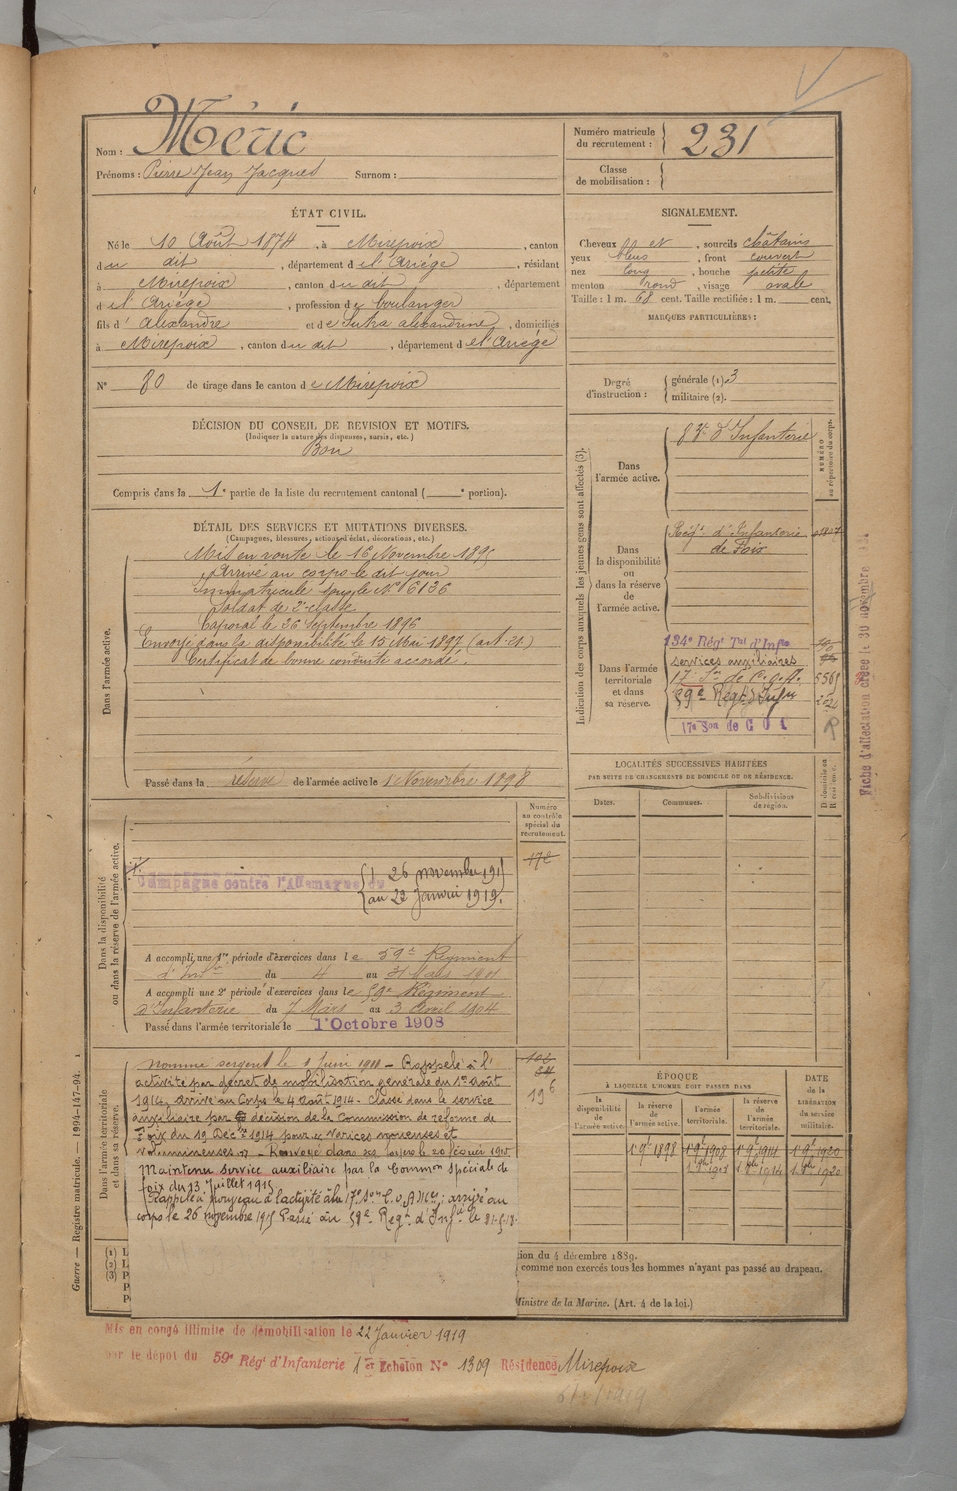 Nom : Méric
Prénoms : Pierre Jean Jacques Surnom :
Numéro matricule du recrutement : 231
Classe de mobilisation :
ÉTAT CIVIL.
Né le 10 Août 1874, à Mirepoix, canton
du dit, département de l'Ariège, résidant
à Mirepoix, canton du dit, département
de l'Ariège, profession de boulanger
fils d'Alexandre et de Sutra Alexandrine, domiciliés
à Mirepoix, canton du dit, département de l'Ariège
N° 80 de tirage dans le canton de Mirepoix
SIGNALEMENT.
Cheveux et, sourcils châtains
yeux bleus, front couvert
nez long, bouche petite
menton rond, visage ovale
Taille : 1 m. 68 cent. Taille rectifiée : 1 m. cent.
MARQUES PARTICULIÈRES :
Degré d'instruction : générale (1) 3
militaire (2).
DÉCISION DU CONSEIL DE REVISION ET MOTIFS.
(Indiquer la nature des dispenses, sursis, etc.)
Bon
Compris dans la 1e partie de la liste du recrutement cantonal ( e portion).
DÉTAIL DES SERVICES ET MUTATIONS DIVERSES.
(Campagnes, blessures, actions d'éclat, décorations, etc.)
Dans l'armée active.
Mis en route le 16 Novembre 1895
Arrivé au corps le dit jour
Immatriculé sous le N° 6136
Soldat de 2e classe
Caporal le 26 Septembre 1896
Envoyé dans la disponibilité le 15 Mai 1897 (art. 21)
Certificat de bonne conduite accordé.
Passé dans la réserve de l'armée active le 1 Novembre 1898
Indication des corps auxquels les jeunes gens sont affectés (3).
NUMÉRO au répertoire du corps.
Dans l'armée active.
d'Infanterie
Dans la disponibilité ou dans la réserve de l'armée active.
Régt d'Infanterie
de Foix
Dans l'armée territoriale et dans sa réserve.
134e Régt Tal d'Infie
services auxiliaires
17 Son de C.O.A. 5561
59e Régt d'Infie
17e Son de C O A
Fiche d'affectation créée le 30 novembre
LOCALITÉS SUCCESSIVES HABITÉES
PAR SUITE DE CHANGEMENTS DE DOMICILE OU DE RÉSIDENCE.
Dates. Communes. Subdivisions de région. D. domicile ou R. résidence.
Dans la disponibilité ou dans la réserve de l'armée active.
Numéro au contrôle spécial du recrutement.
Campagne contre l'Allemagne du
26 novembre 191
au 22 Janvier 1919.
A accompli une 1re période d'exercices dans le 59e Régiment
d'Infie du 4 au 31 Mars 1901
A accompli une 2e période d'exercices dans le 59e Régiment
d'Infanterie du 7 Mars au 3 Avril 1904
Passé dans l'armée territoriale le 1er Octobre 1908
Dans l'armée territoriale et dans sa réserve.
Nommé sergent le Juin 1911 - Rappelé à l'
activité par décret de mobilisation générale du 1er Août
1914, arrivé au Corps le 4 août 1914. Classé dans le service
auxiliaire par décision de la Commission de réforme de
Foix du 19 Décbre 1914 pour varices noueuses et
volumineuses. Renvoyé dans ses foyers le 20 février 1915
Maintenu service auxiliaire par la Common spéciale de
foix du 23 Juillet 1915
Rappelé à nouveau à l'activité à la 17e Son C.O.A.; arrivé au
corps le 26 novembre 1915 Passé au 59e Régt d'Infie le
19
ÉPOQUE
À LAQUELLE L'HOMME DOIT PASSER DANS
DATE de la LIBÉRATION du service militaire.
la disponibilité de l'armée active.
la réserve de l'armée active.
l'armée territoriale.
la réserve de l'armée territoriale.
1 9bre 1898 1 9bre 1908 1 9bre 1914 1 9bre 1920
Guerre — Registre matricule. — 1994-147-94.
(1) L
(2) L
(3) P
tion du 4 décembre 1889.
comme non exercés tous les hommes n'ayant pas passé au drapeau.
Ministre de la Marine. (Art. 4 de la loi.)
Mis en congé illimité de démobilisation le 22 Janvier 1919
par le dépôt du 59e Régt d'Infanterie 1er Echelon N° 1309 Résidence Mirepoix